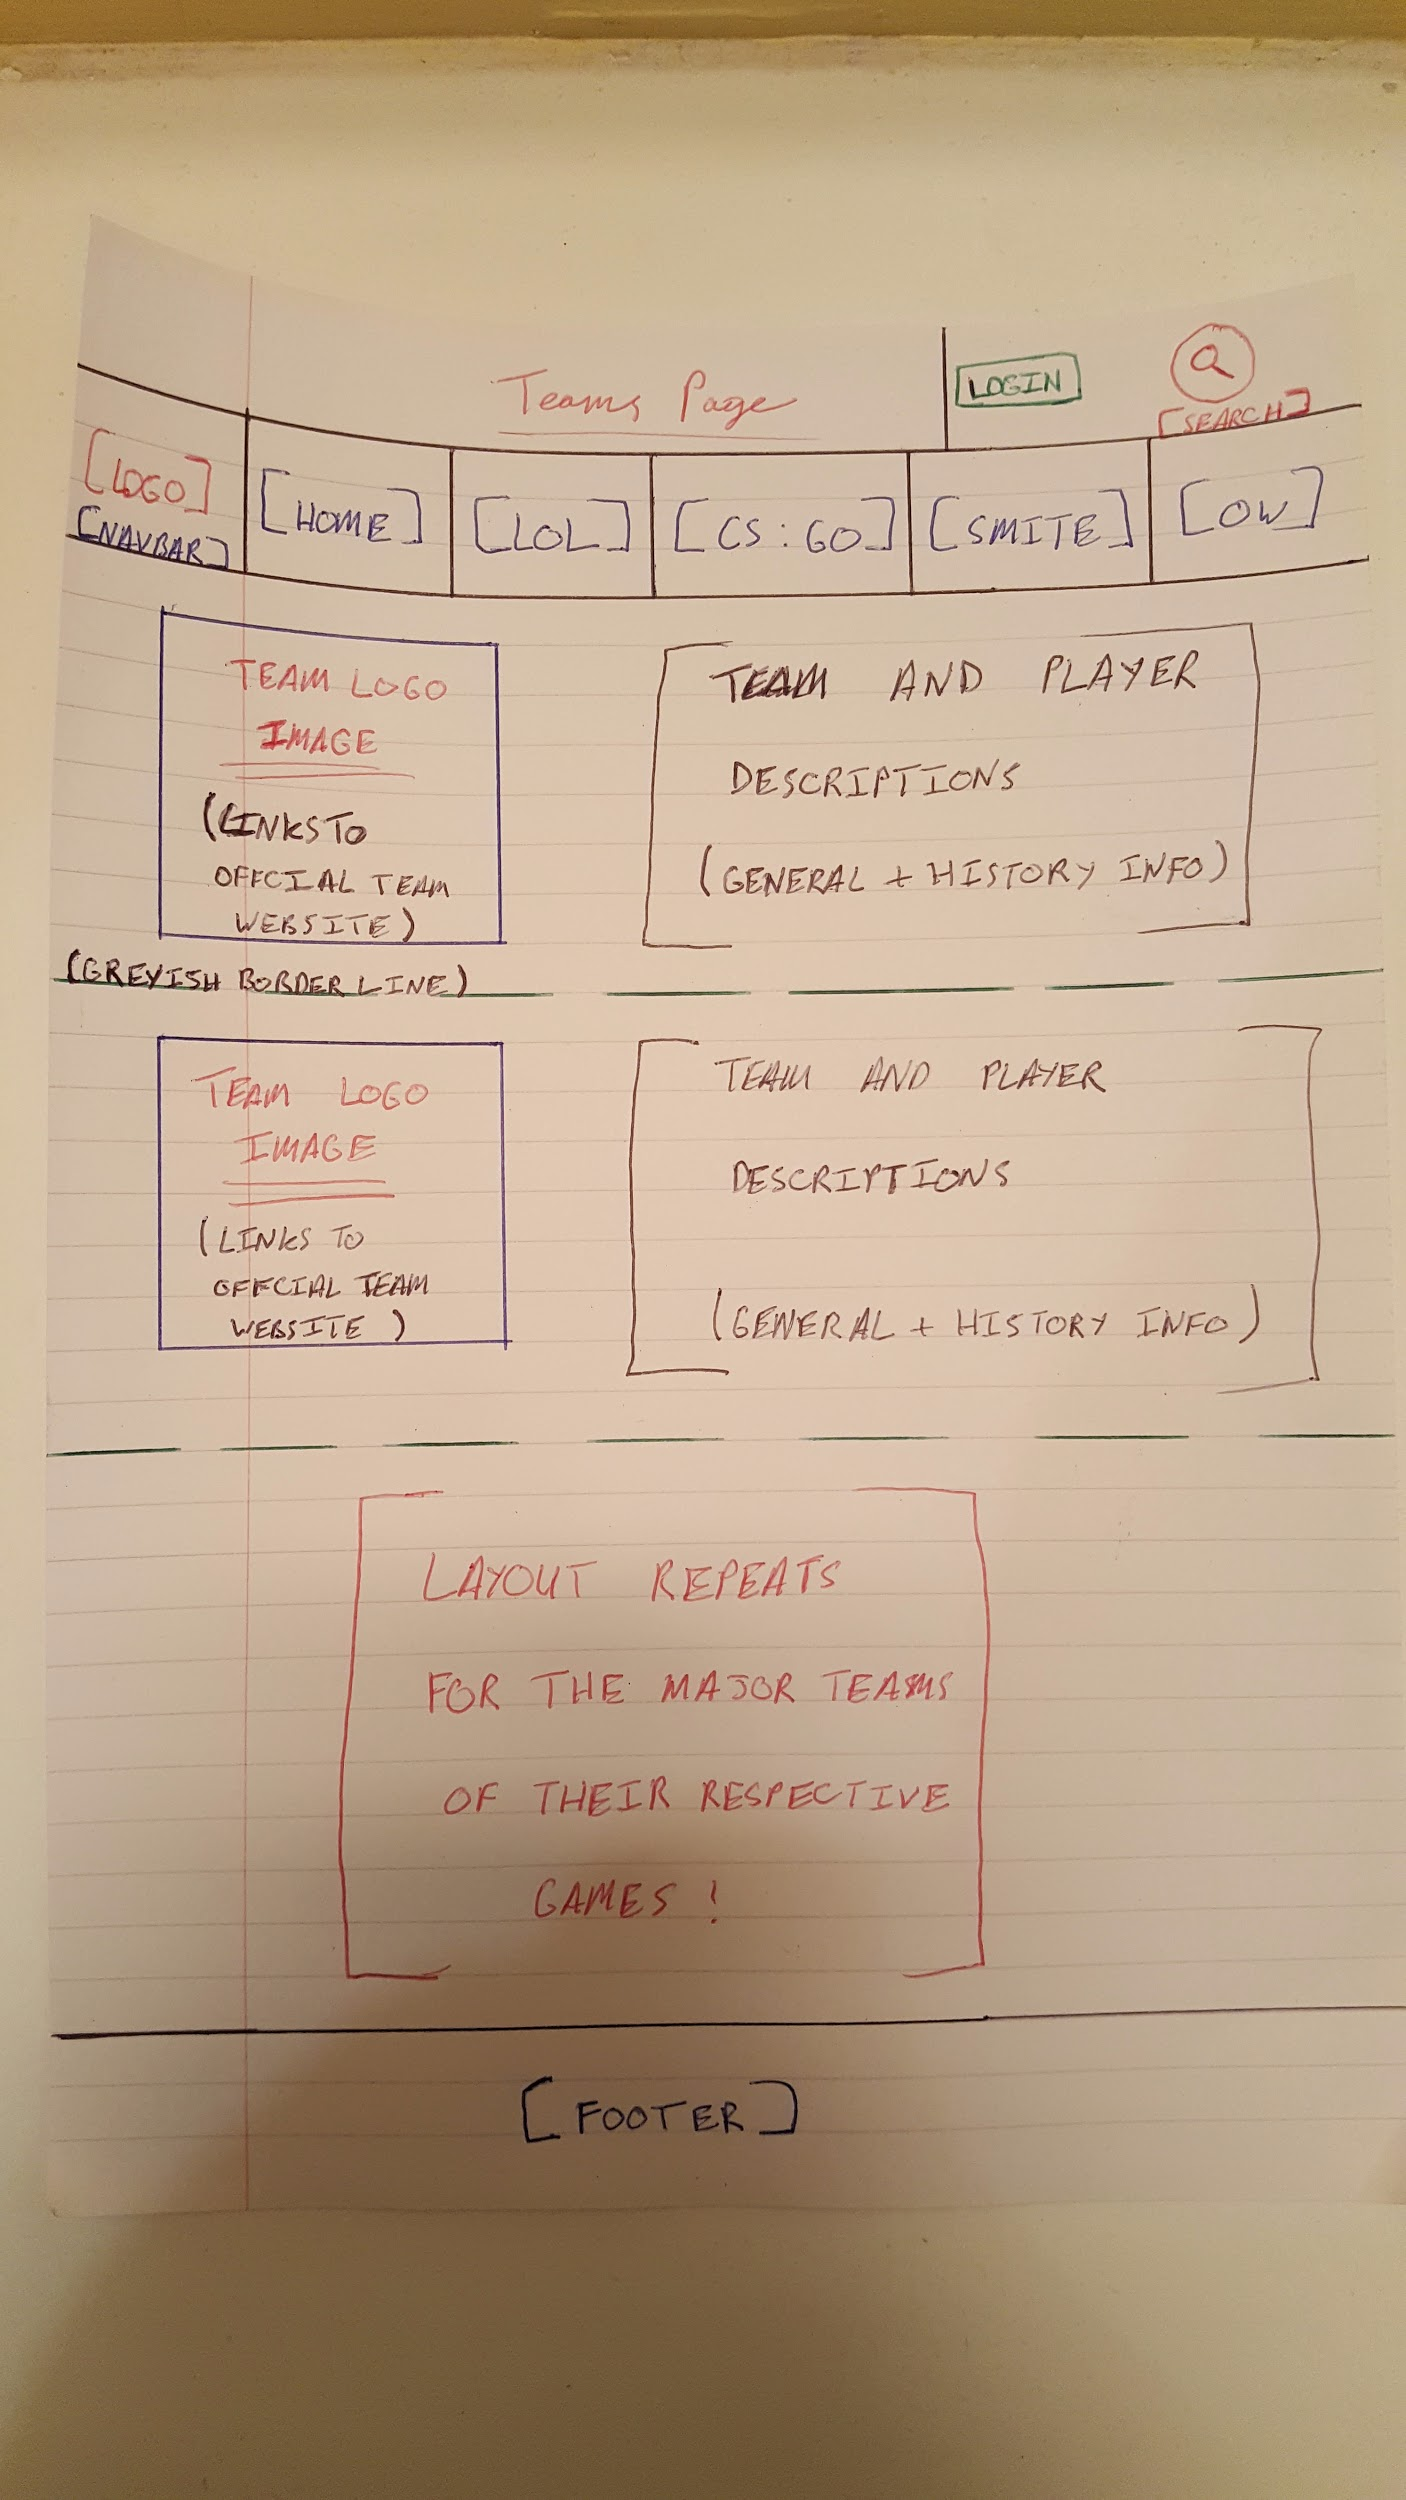 Teams Page
LOGIN
[SEARCH]
[LOGO]
[NAVBAR]
[HOME]
[LOL]
[CS:GO]
[SMITE]
[OW]
TEAM LOGO
IMAGE
(LINKS TO
OFFCIAL TEAM
WEBSITE)
TEAM AND PLAYER
DESCRIPTIONS
(GENERAL + HISTORY INFO)
(GREYISH BORDER LINE)
TEAM LOGO
IMAGE
(LINKS TO
OFFCIAL TEAM
WEBSITE)
TEAM AND PLAYER
DESCRIPTIONS
(GENERAL + HISTORY INFO)
LAYOUT REPEATS
FOR THE MAJOR TEAMS
OF THEIR RESPECTIVE
GAMES!
[FOOTER]